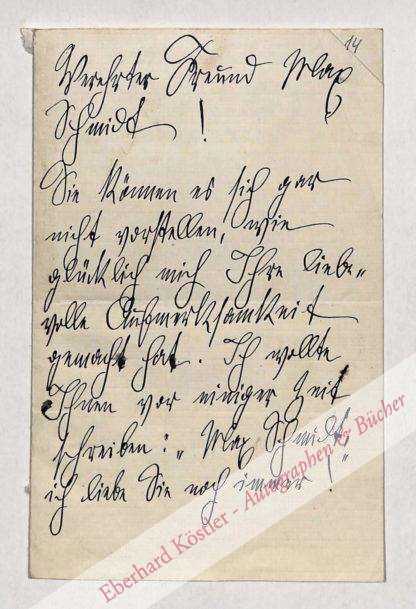 14
Verehrter Freund Max
Schmidt!
Sie können es sich gar
nicht vorstellen, wie
glücklich mich Ihre liebe-
volle Aufmerksamkeit
gemacht hat. Ich wollte
Ihnen vor einiger Zeit
schreiben: „Max Schmidt
ich liebe Sie noch immer!“
Eberhard Köstler - Autographen & Bücher